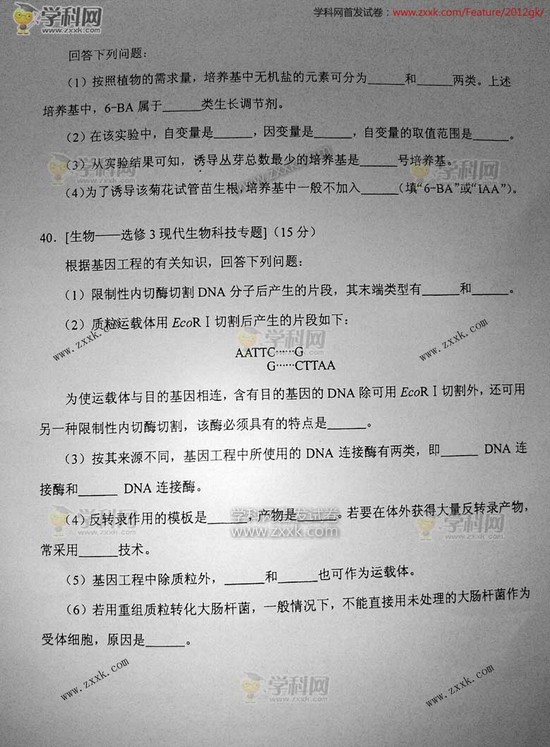 学科网
学科网首发试卷:www.zxxk.com/Feature/2012gk/
回答下列问题:
(1)按照植物的需求量,培养基中无机盐的元素可分为______和______两类。上述
培养基中,6-BA 属于______类生长调节剂。
(2)在该实验中,自变量是______,因变量是______,自变量的取值范围是______。
(3)从实验结果可知,诱导丛芽总数最少的培养基是______号培养基。
(4)为了诱导该菊花试管苗生根,培养基中一般不加入______(填“6-BA”或“IAA”)。
学科网
www.zxxk.com
40.[生物——选修 3 现代生物科技专题](15 分)
根据基因工程的有关知识,回答下列问题:
(1)限制性内切酶切割 DNA 分子后产生的片段,其末端类型有______和______。
(2)质粒运载体用 EcoRⅠ切割后产生的片段如下:
www.zxxk.com
学科网
www.zxxk.com
AATTC……G
G……CTTAA
为使运载体与目的基因相连,含有目的基因的 DNA 除可用 EcoRⅠ切割外,还可用
另一种限制性内切酶切割,该酶必须具有的特点是______。
(3)按其来源不同,基因工程中所使用的 DNA 连接酶有两类,即______ DNA 连
接酶和______ DNA 连接酶。
学科网首发试卷
www.zxxk.com
(4)反转录作用的模板是______,产物是______。若要在体外获得大量反转录产物,
常采用______技术。
学科网
学科网
(5)基因工程中除质粒外,______和______也可作为运载体。
(6)若用重组质粒转化大肠杆菌,一般情况下,不能直接用未处理的大肠杆菌作为
受体细胞,原因是______。
www.zxxk.com
学科网
www.zxxk.com